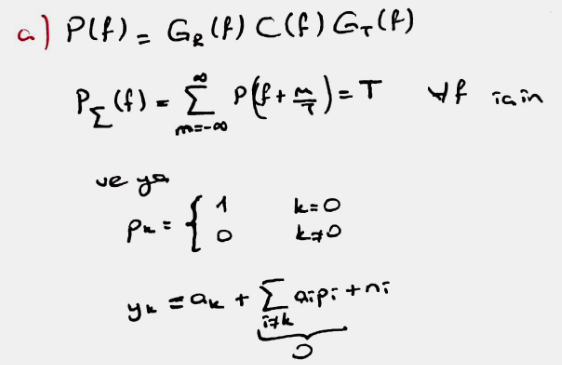 a) P(f) = G_R(f) C(f) G_T(f)
P_Σ(f) = Σ_{m=-∞}^{∞} P(f + m/T) = T ∀f için
ve ya
p_k = { 1 k=0
0 k≠0
y_k = a_k + Σ_{i≠k} a_i p_i + n_i
0